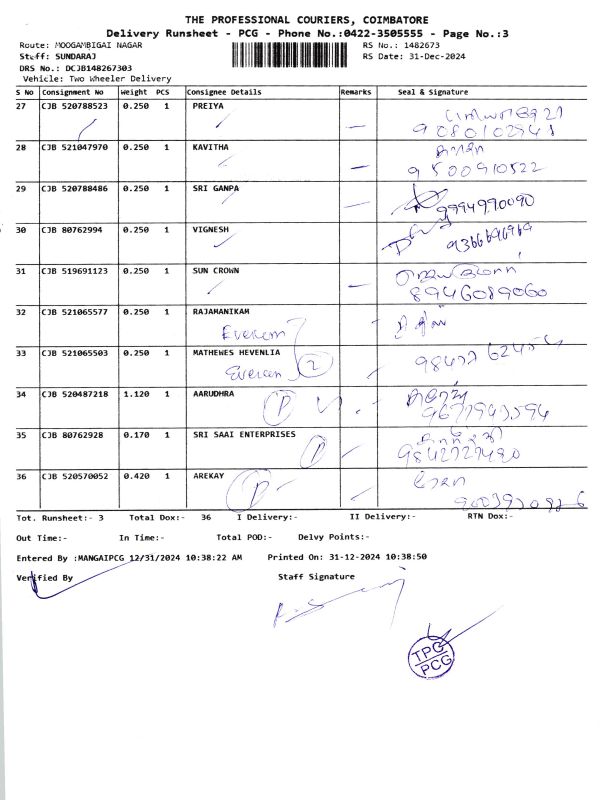 THE PROFESSIONAL COURIERS, COIMBATORE
Delivery Runsheet - PCG - Phone No.:0422-3505555 - Page No.:3
Route: MOOGAMBIGAI NAGAR RS No.: 1482673
Staff: SUNDARAJ RS Date: 31-Dec-2024
DRS No.: DCJB148267303
Vehicle: Two Wheeler Delivery
S No Consignment No Weight PCS Consignee Details Remarks Seal & Signature
27 CJB 520788523 0.250 1 PREIYA
28 CJB 521047970 0.250 1 KAVITHA
9500910522
29 CJB 520788486 0.250 1 SRI GANPA
9994990090
30 CJB 80762994 0.250 1 VIGNESH
9366696969
31 CJB 519691123 0.250 1 SUN CROWN
8946089060
32 CJB 521065577 0.250 1 RAJAMANIKAM
33 CJB 521065503 0.250 1 MATHEWES HEVENLIA
2
34 CJB 520487218 1.120 1 AARUDHRA
P
35 CJB 80762928 0.170 1 SRI SAAI ENTERPRISES
P
36 CJB 520570052 0.420 1 AREKAY
P
Tot. Runsheet:- 3 Total Dox:- 36 I Delivery:- II Delivery:- RTN Dox:-
Out Time:- In Time:- Total POD:- Delvy Points:-
Entered By :MANGAIPCG 12/31/2024 10:38:22 AM Printed On: 31-12-2024 10:38:50
Verified By Staff Signature
TPG
PCG